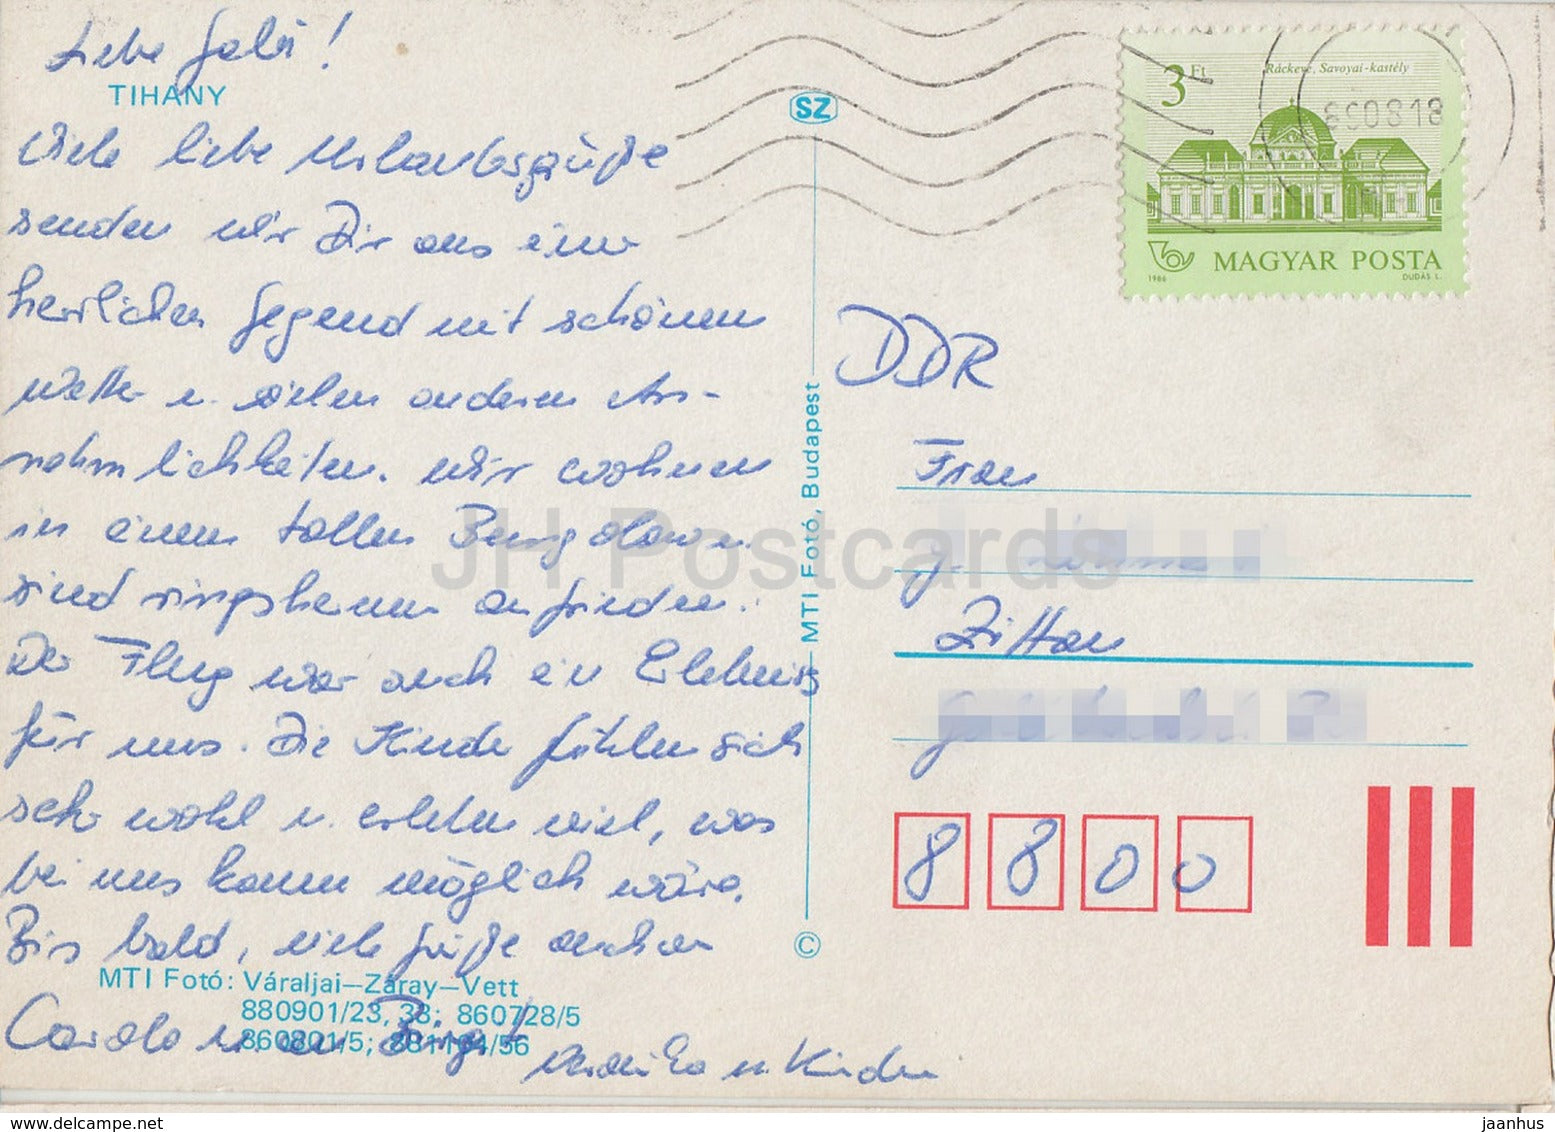 Liebe Gabi!
TIHANY
Viele liebe Urlaubsgrüße
senden wir Dir aus einer
herrlichen Gegend mit schönem
Wetter u. vielen anderen An-
nehmlichkeiten. Wir wohnen
in einem tollen Bungalow u.
sind ringsherum zufrieden.
Der Flug war auch ein Erlebnis
für uns. Die Kinder fühlen sich
sehr wohl u. erleben viel, was
bei uns kaum möglich wäre.
Bis bald, viele Grüße auch an
MTI Fotó: Váraljai—Záray—Vett
880901/23, 38; 860728/5
860801/5; 881104/56
Carola u. an Birgit
u. Kinder
SZ
MTI Fotó, Budapest
©
3 Ft
Ráckeve, Savoyai-kastély
880818
MAGYAR POSTA
1986
DUDÁS L.
DDR
Frau
Zittau
8800
JH Postcards
www.delcampe.net
jaanhus